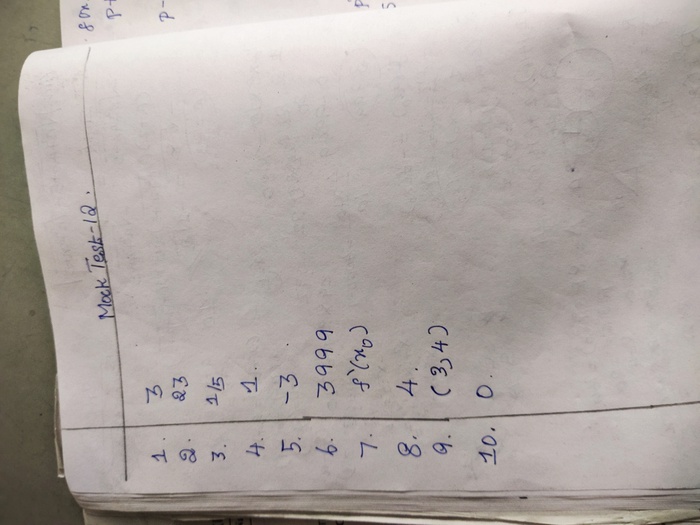 Mock Test-12.
1. 3
2. 23
3. 1/5
4. 1.
5. -3
6. 3999
7. f'(x₀)
8. 4.
9. (3,4)
10. 0.
for
p-